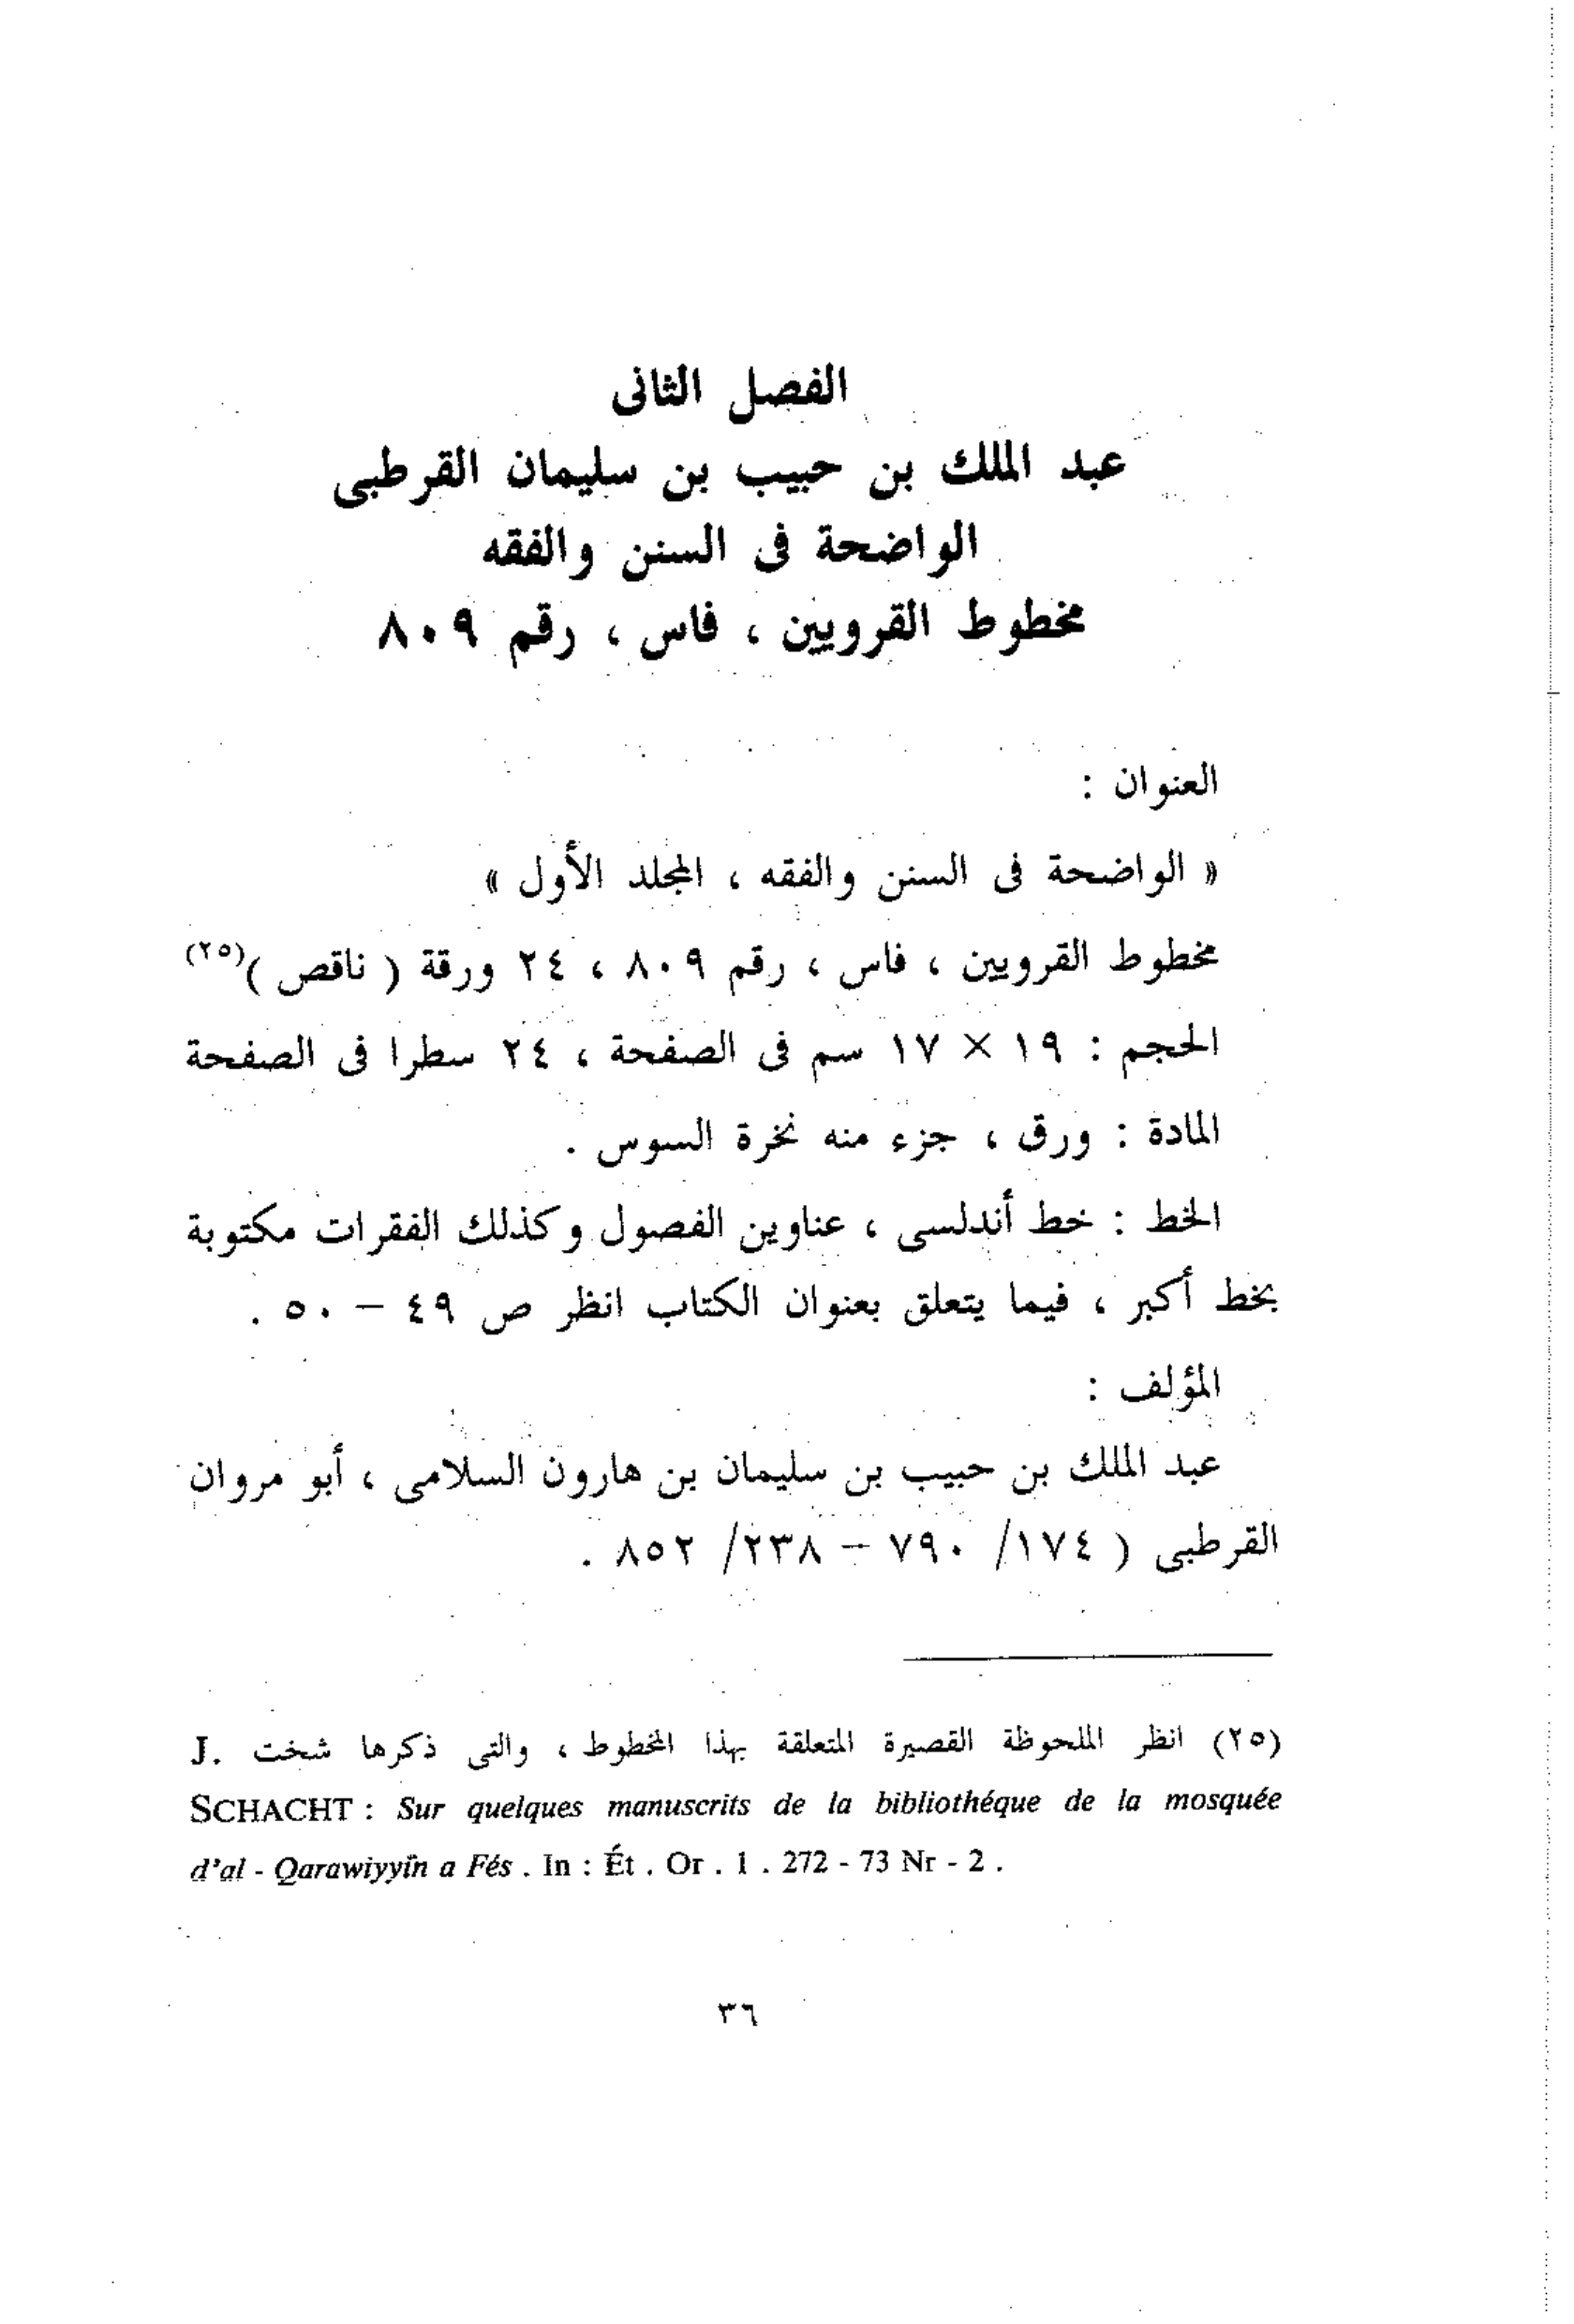 الفصل الثانى
عبد الملك بن حبيب بن سليمان القرطبى
الواضحة فى السنن والفقه
مخطوط القرويين ، فاس ، رقم ٨٠٩
العنوان :
« الواضحة فى السنن والفقه ، المجلد الأول »
مخطوط القرويين ، فاس ، رقم ٨٠٩ ، ٢٤ ورقة ( ناقص )(٢٥)
الحجم : ١٩ × ١٧ سم فى الصفحة ، ٢٤ سطرا فى الصفحة
المادة : ورق ، جزء منه نخرة السوس .
الخط : خط أندلسى ، عناوين الفصول وكذلك الفقرات مكتوبة
بخط أكبر ، فيما يتعلق بعنوان الكتاب انظر ص ٤٩ – ٥٠ .
المؤلف :
عبد الملك بن حبيب بن سليمان بن هارون السلامى ، أبو مروان
القرطبى ( ١٧٤/ ٧٩٠ – ٢٣٨/ ٨٥٢ .
(٢٥) انظر الملحوظة القصيرة المتعلقة بهذا المخطوط ، والتى ذكرها شخت J.
SCHACHT : Sur quelques manuscrits de la bibliothéque de la mosquée
d'al - Qarawiyyîn a Fés . In : Ét . Or . 1 . 272 - 73 Nr - 2 .
٣٦